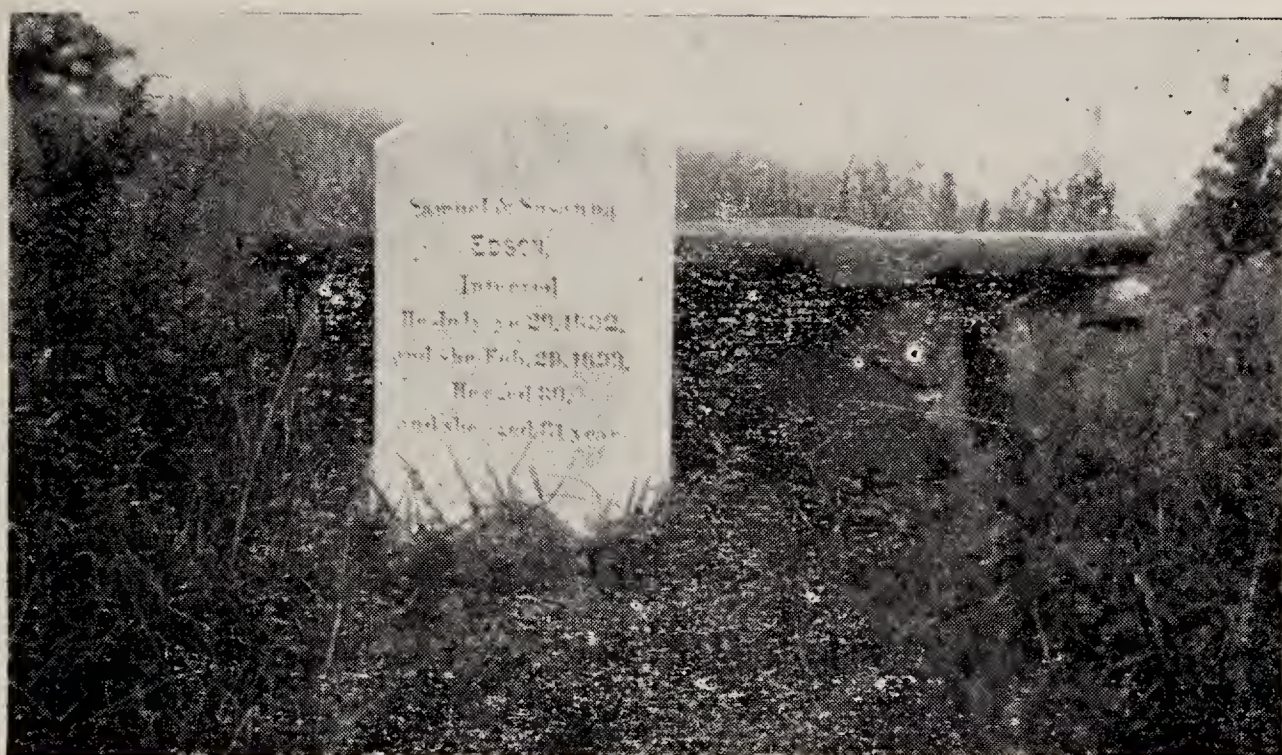 Samuel & Susanna
EDSON,
Interred
He July 20, 1692,
and she Feb. 20, 1699,
He aged 80,
and she aged 81 years